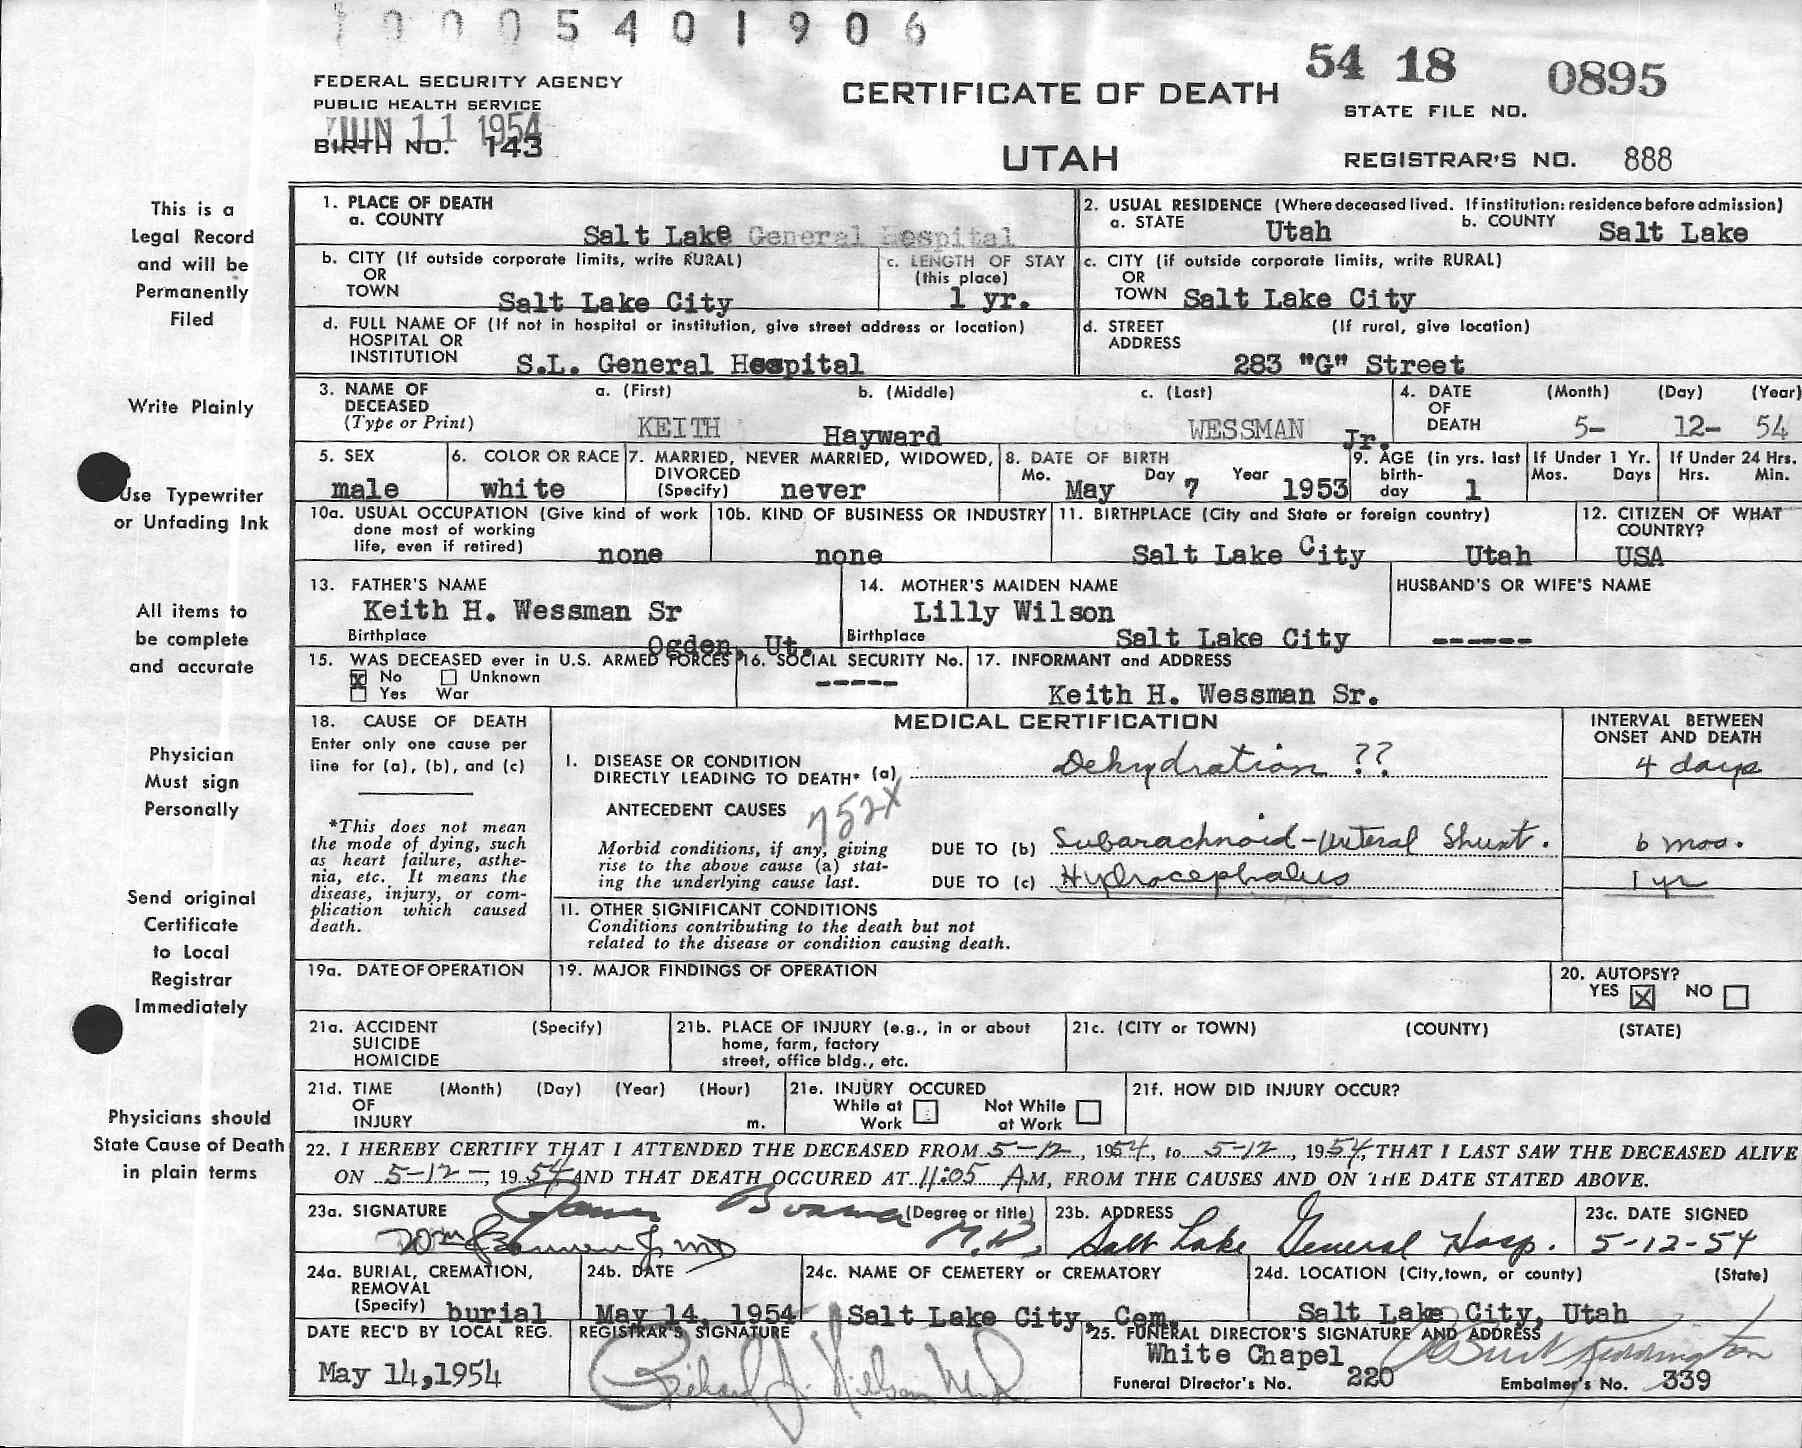 1 0 0 0 5 4 0 1 9 0 6
FEDERAL SECURITY AGENCY
PUBLIC HEALTH SERVICE
JUN 11 1954
BIRTH NO. 143
CERTIFICATE OF DEATH
UTAH
54 18 0895
STATE FILE NO.
REGISTRAR'S NO. 888
This is a
Legal Record
and will be
Permanently
Filed
Write Plainly
Use Typewriter
or Unfading Ink
All items to
be complete
and accurate
Physician
Must sign
Personally
Send original
Certificate
to Local
Registrar
Immediately
Physicians should
State Cause of Death
in plain terms
1. PLACE OF DEATH
a. COUNTY Salt Lake General Hospital
2. USUAL RESIDENCE (Where deceased lived. If institution: residence before admission)
a. STATE Utah b. COUNTY Salt Lake
b. CITY (If outside corporate limits, write RURAL)
OR
TOWN Salt Lake City
c. LENGTH OF STAY
(this place)
1 yr.
c. CITY (if outside corporate limits, write RURAL)
OR
TOWN Salt Lake City
d. FULL NAME OF (If not in hospital or institution, give street address or location)
HOSPITAL OR
INSTITUTION S.L. General Hospital
d. STREET (If rural, give location)
ADDRESS 283 "G" Street
3. NAME OF a. (First) b. (Middle) c. (Last)
DECEASED
(Type or Print) KEITH Hayward WESSMAN Jr.
4. DATE (Month) (Day) (Year)
OF
DEATH 5- 12- 54
5. SEX
male
6. COLOR OR RACE
white
7. MARRIED, NEVER MARRIED, WIDOWED,
DIVORCED
(Specify) never
8. DATE OF BIRTH
Mo. May Day 7 Year 1953
9. AGE (in yrs. last
birth-
day 1
If Under 1 Yr.
Mos. Days
If Under 24 Hrs.
Hrs. Min.
10a. USUAL OCCUPATION (Give kind of work
done most of working
life, even if retired) none
10b. KIND OF BUSINESS OR INDUSTRY
none
11. BIRTHPLACE (City and State or foreign country)
Salt Lake City Utah
12. CITIZEN OF WHAT
COUNTRY?
USA
13. FATHER'S NAME
Keith H. Wessman Sr
Birthplace Ogden, Ut.
14. MOTHER'S MAIDEN NAME
Lilly Wilson
Birthplace Salt Lake City
HUSBAND'S OR WIFE'S NAME
------
15. WAS DECEASED ever in U.S. ARMED FORCES
x No Unknown
Yes War
16. SOCIAL SECURITY No.
-----
17. INFORMANT and ADDRESS
Keith H. Wessman Sr.
18. CAUSE OF DEATH
Enter only one cause per
line for (a), (b), and (c)
*This does not mean
the mode of dying, such
as heart failure, asthe-
nia, etc. It means the
disease, injury, or com-
plication which caused
death.
MEDICAL CERTIFICATION
INTERVAL BETWEEN
ONSET AND DEATH
I. DISEASE OR CONDITION
DIRECTLY LEADING TO DEATH* (a) Dehydration ?? 4 days
ANTECEDENT CAUSES 752X
Morbid conditions, if any, giving
rise to the above cause (a) stat-
ing the underlying cause last.
DUE TO (b) Subarachnoid-Ureteral Shunt. 6 mos.
DUE TO (c) Hydrocephalus 1 yr
II. OTHER SIGNIFICANT CONDITIONS
Conditions contributing to the death but not
related to the disease or condition causing death.
19a. DATE OF OPERATION
19. MAJOR FINDINGS OF OPERATION
20. AUTOPSY?
YES X NO
21a. ACCIDENT (Specify)
SUICIDE
HOMICIDE
21b. PLACE OF INJURY (e.g., in or about
home, farm, factory
street, office bldg., etc.
21c. (CITY or TOWN) (COUNTY) (STATE)
21d. TIME (Month) (Day) (Year) (Hour)
OF
INJURY m.
21e. INJURY OCCURED
While at Work Not While at Work
21f. HOW DID INJURY OCCUR?
22. I HEREBY CERTIFY THAT I ATTENDED THE DECEASED FROM 5-12, 1954, to 5-12, 1954, THAT I LAST SAW THE DECEASED ALIVE
ON 5-12-, 1954 AND THAT DEATH OCCURED AT 11:05 A.M, FROM THE CAUSES AND ON THE DATE STATED ABOVE.
23a. SIGNATURE (Degree or title)
M.D.
23b. ADDRESS
Salt Lake General Hosp.
23c. DATE SIGNED
5-12-54
24a. BURIAL, CREMATION,
REMOVAL
(Specify) burial
24b. DATE
May 14, 1954
24c. NAME OF CEMETERY or CREMATORY
Salt Lake City, Cem.
24d. LOCATION (City, town, or county) (State)
Salt Lake City, Utah
DATE REC'D BY LOCAL REG.
May 14, 1954
REGISTRAR'S SIGNATURE
25. FUNERAL DIRECTOR'S SIGNATURE AND ADDRESS
White Chapel
Funeral Director's No. 220 Embalmer's No. 339